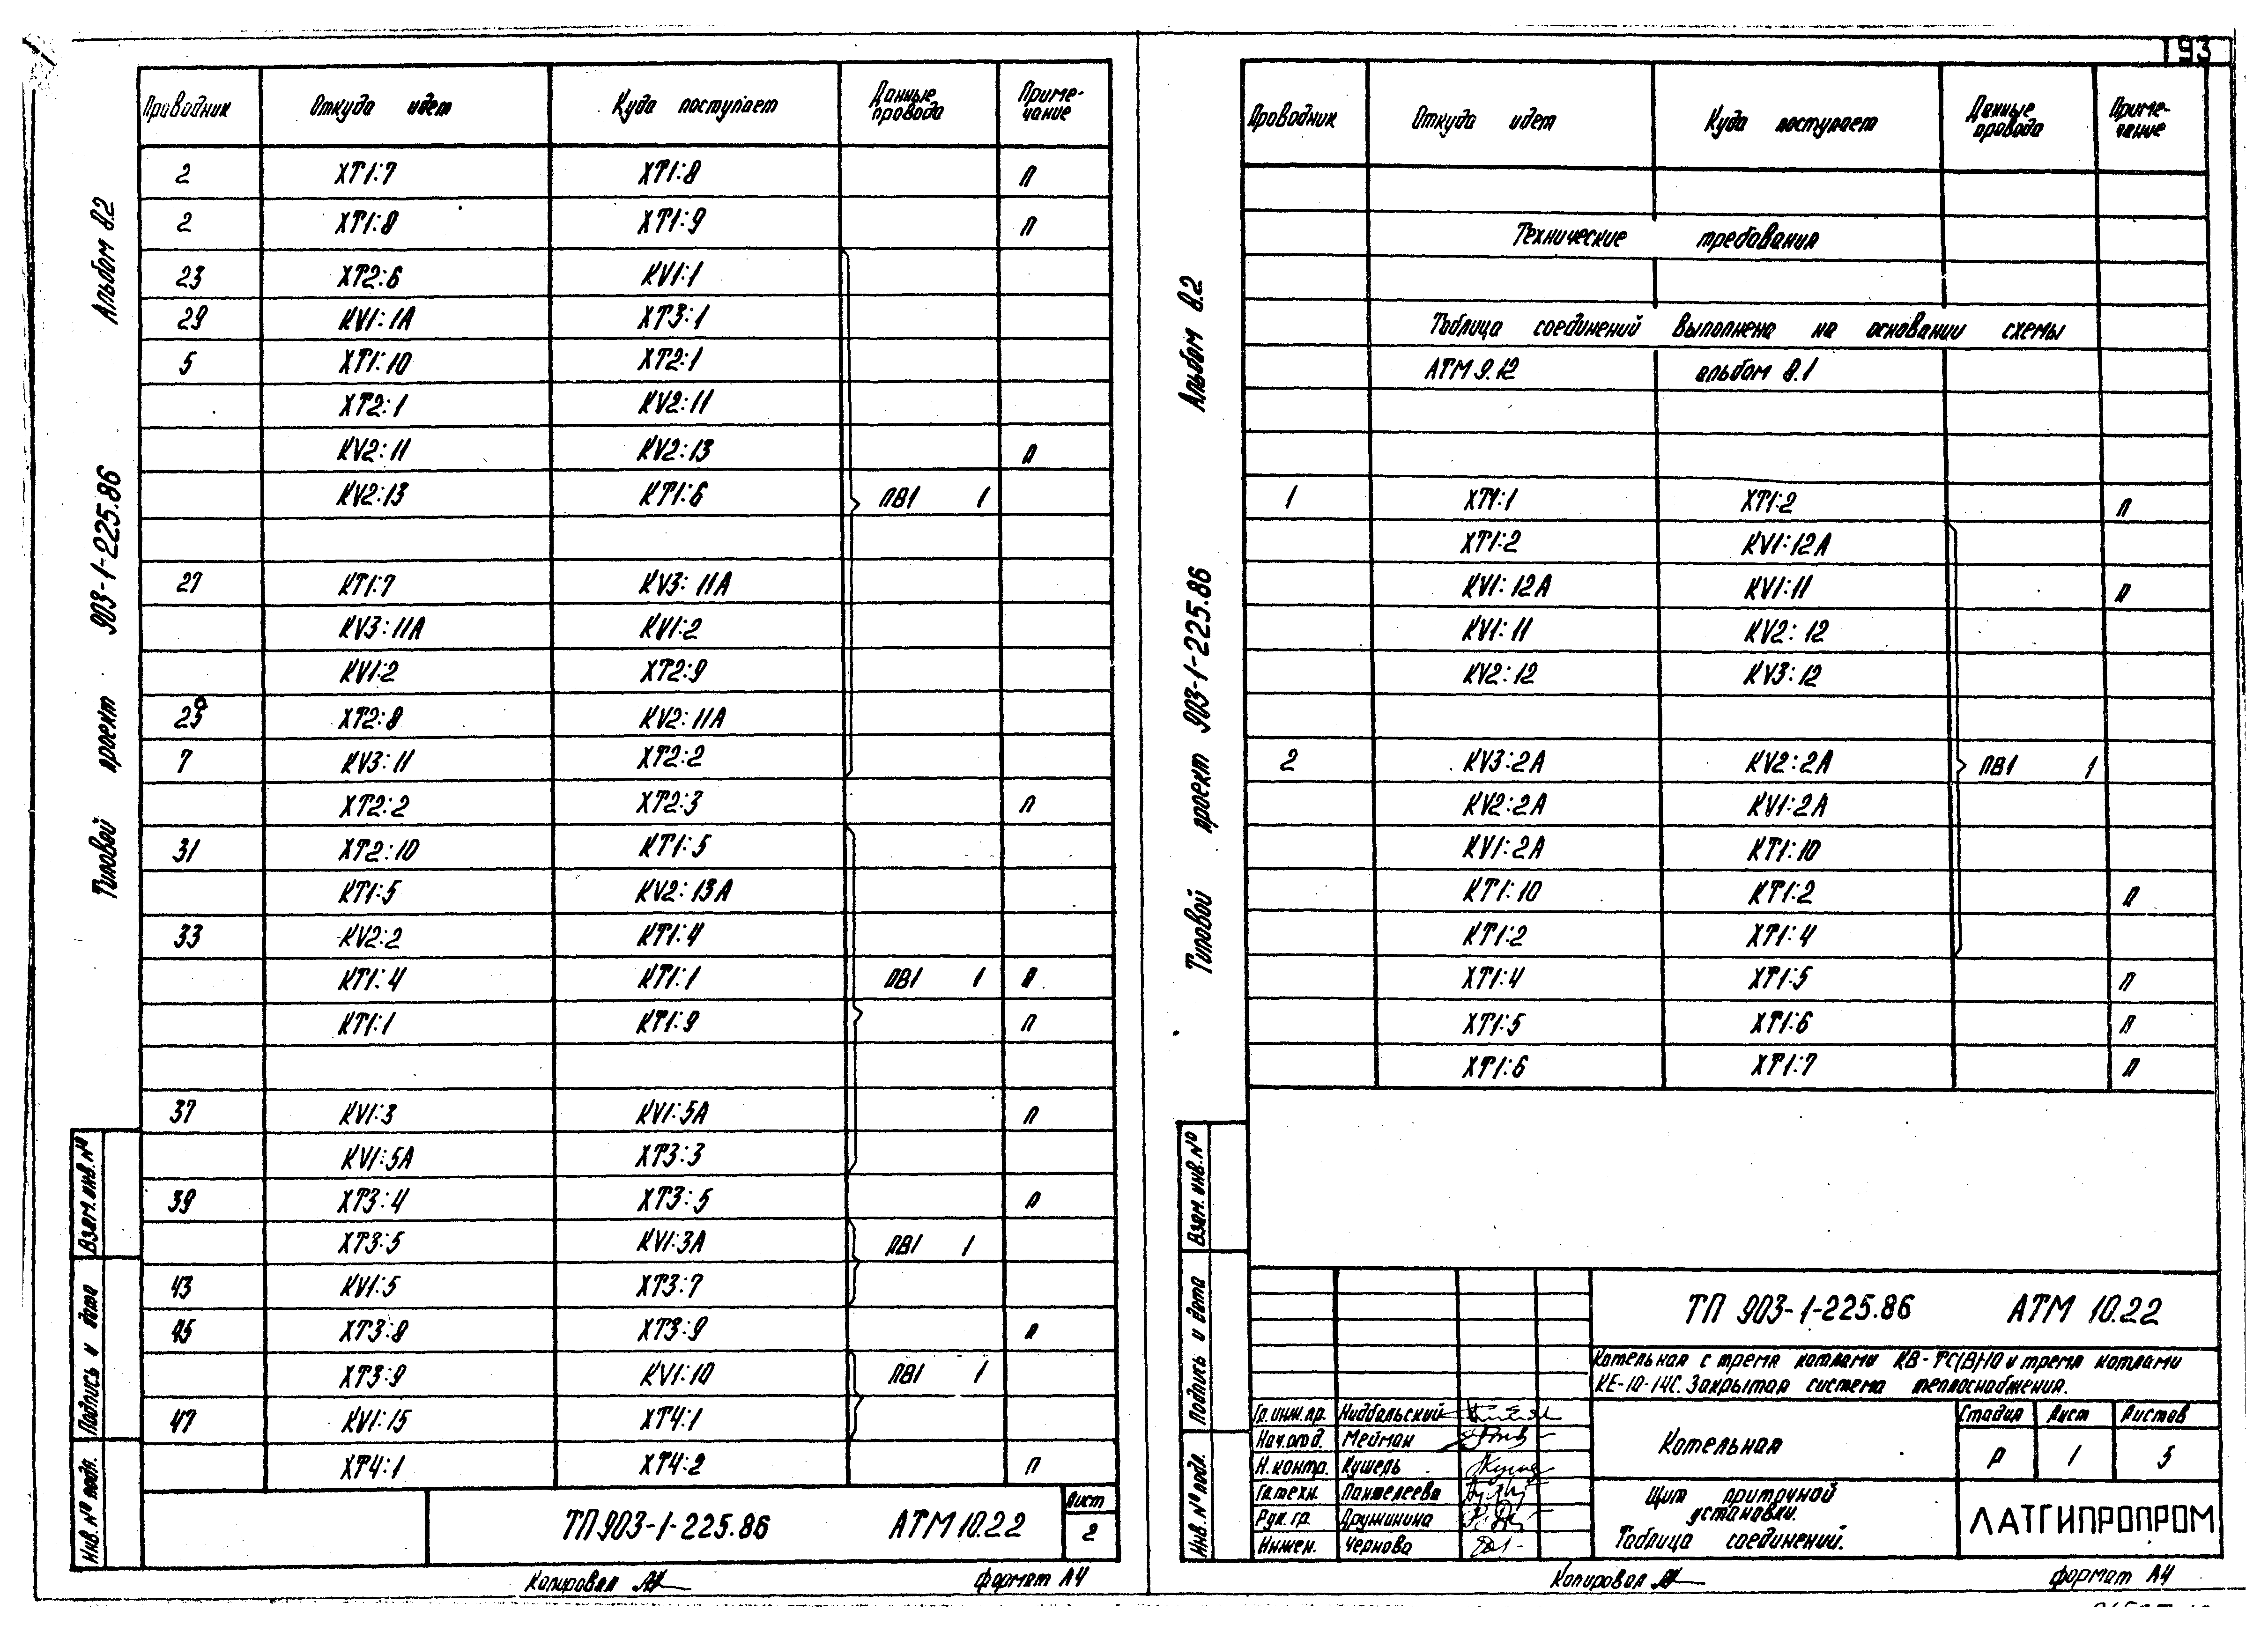 193
Альбом 8.2
Типовой проект 903-1-225.86
Проводник Откуда идет Куда поступает Данные провода Приме-чание
2 ХТ1:7 ХТ1:8 П
2 ХТ1:8 ХТ1:9 П
23 ХТ2:6 KV1:1
29 KV1:1А ХТ3:1
5 ХТ1:10 ХТ2:1
ХТ2:1 KV2:11
KV2:11 KV2:13 П
KV2:13 КТ1:6 ПВ1 1
27 КТ1:7 KV3:11А
KV3:11А KV1:2
KV1:2 ХТ2:9
ХТ2:8 KV2:11А
7 KV3:11 ХТ2:2
ХТ2:2 ХТ2:3 П
31 ХТ2:10 КТ1:5
КТ1:5 KV2:13А
33 KV2:2 КТ1:4
КТ1:4 КТ1:1 ПВ1 1 П
КТ1:1 КТ1:9 П
37 KV1:3 KV1:5А П
KV1:5А ХТ3:3
39 ХТ3:4 ХТ3:5 П
ХТ3:5 KV1:3А ПВ1 1
43 KV1:5 ХТ3:7
45 ХТ3:8 ХТ3:9 П
ХТ3:9 KV1:10 ПВ1 1
47 KV1:15 ХТ4:1
ХТ4:1 ХТ4:2 П
Взам. инв. №
Подпись и дата
Инв. № подл.
ТП 903-1-225.86 АТМ 10.22
Лист
2
Копировал
формат А4
Альбом 8.2
Типовой проект 903-1-225.86
Проводник Откуда идет Куда поступает Данные провода Приме-чание
Технические требования
Таблица соединений выполнена на основании схемы
АТМ 9.12 альбом 8.1
1 ХТ1:1 ХТ1:2 П
ХТ1:2 KV1:12А
KV1:12А KV1:11 П
KV1:11 KV2:12
KV2:12 KV3:12
2 KV3:2А KV2:2А ПВ1 1
KV2:2А KV1:2А
KV1:2А КТ1:10
КТ1:10 КТ1:2 П
КТ1:2 ХТ1:4
ХТ1:4 ХТ1:5 П
ХТ1:5 ХТ1:6 П
ХТ1:6 ХТ1:7 П
Взам. инв. №
Подпись и дата
Инв. № подл.
ТП 903-1-225.86 АТМ 10.22
Котельная с тремя котлами КВ-ТС(В)-10 и тремя котлами
КЕ-10-14С. Закрытая система теплоснабжения.
Гл. инж. пр. Нидбальский
Нач. отд. Мейман
Н. контр. Кушель
Гл. техн. Пантелеева
Рук. гр. Дружинина
Инжен. Чернова
Котельная
Стадия Лист Листов
Р 1 5
Щит приточной
установки.
Таблица соединений.
ЛАТГИПРОПРОМ
Копировал
формат А4